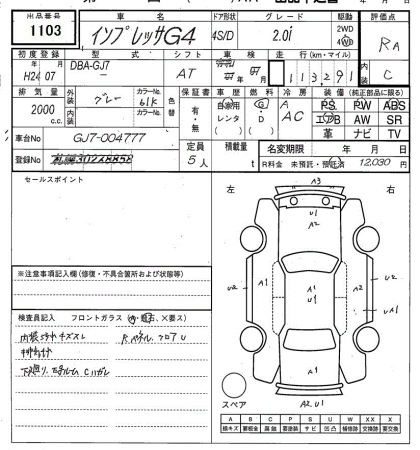 出品番号 車名 ドア形状 グレード 駆動 評価点
1103 インプレッサG4 4S/D 2.0i 2WD 4WD RA
初度登録 型式 シフト 車検 走行(km・マイル) 内装
年 月 DBA-GJ7 AT 年 月 113,291 C
H24 07
排気量 外装 グレー カラーNo. 61K 色替 保証書 車歴 燃料 冷房 装備(純正部品に限る)
2000 c.c. 内装 カラーNo. 有・無 自家用 G・D A AC PS PW ABS
レンタ エアB AW SR
車台No GJ7-004777 ( ) ( ) 革 ナビ TV
登録No 定員 5人 積載量 t 名変期限 年 月 日
R料金 未預託・預託済 12,030 円
セールスポイント
左 右
A3
U1
A2
U2 A1 A1 U1 A1 U2
A2 U1
スペア
※注意事項記入欄(修復・不具合箇所および状態等)
検査員記入 フロントガラス
内装ヨゴレ キズスレ Rペダル、フロア U
下廻り、
A B C P S U W XX X
線キズ 要板金 腐蝕 要塗装 サビ 凹凸 補修跡 交換跡 要交換